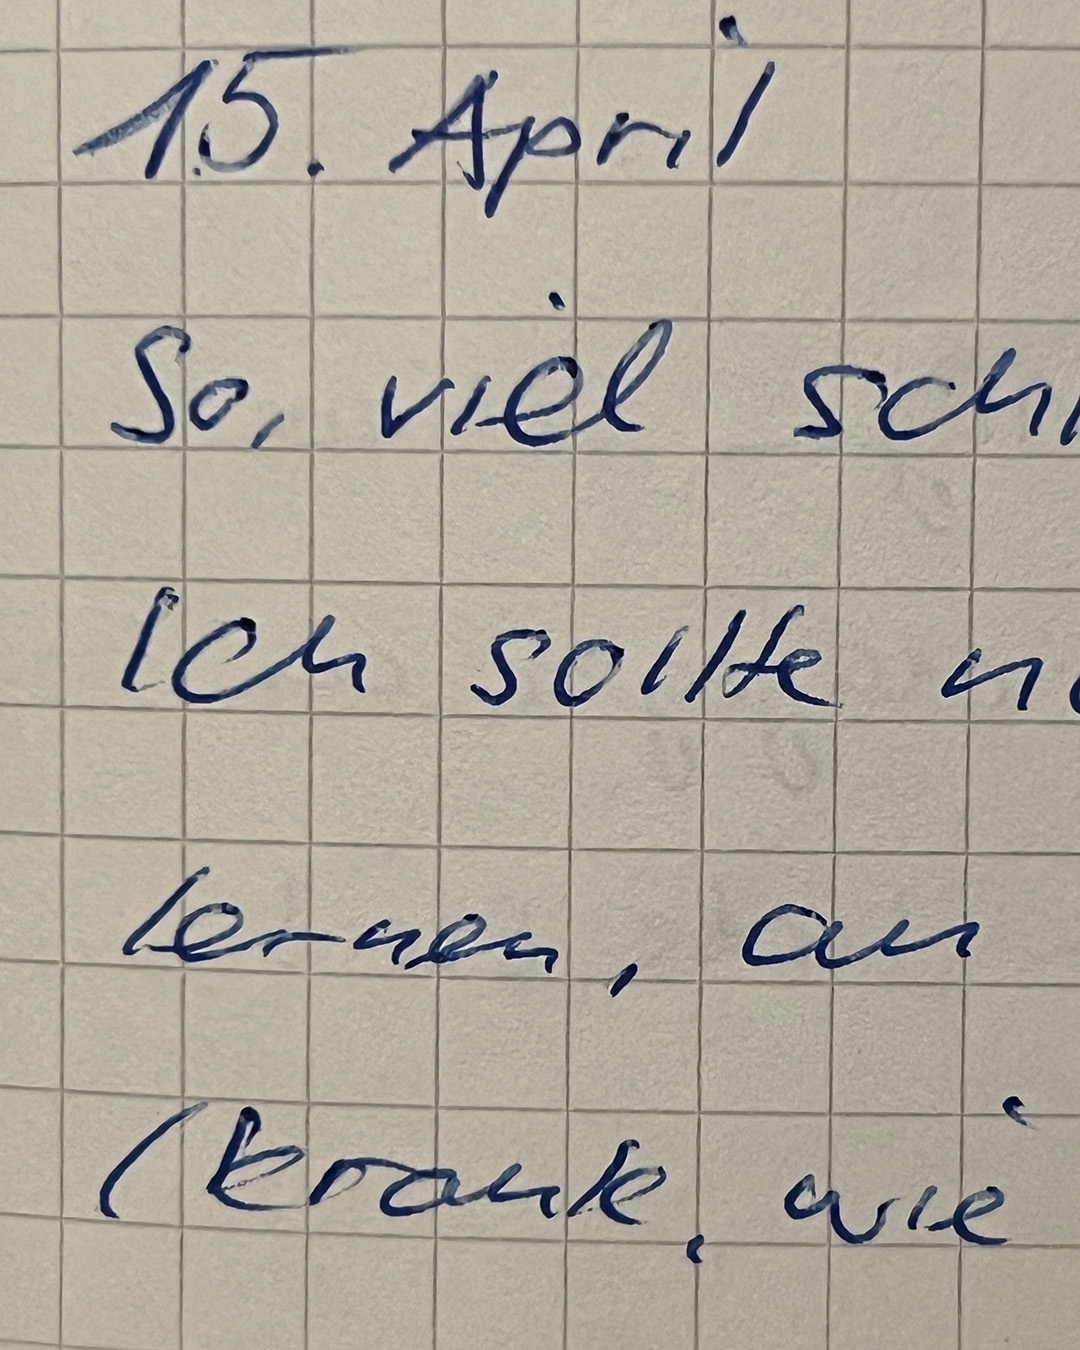 15. April
So, viel sch
Ich sollte
lernen, an
(krank, wie